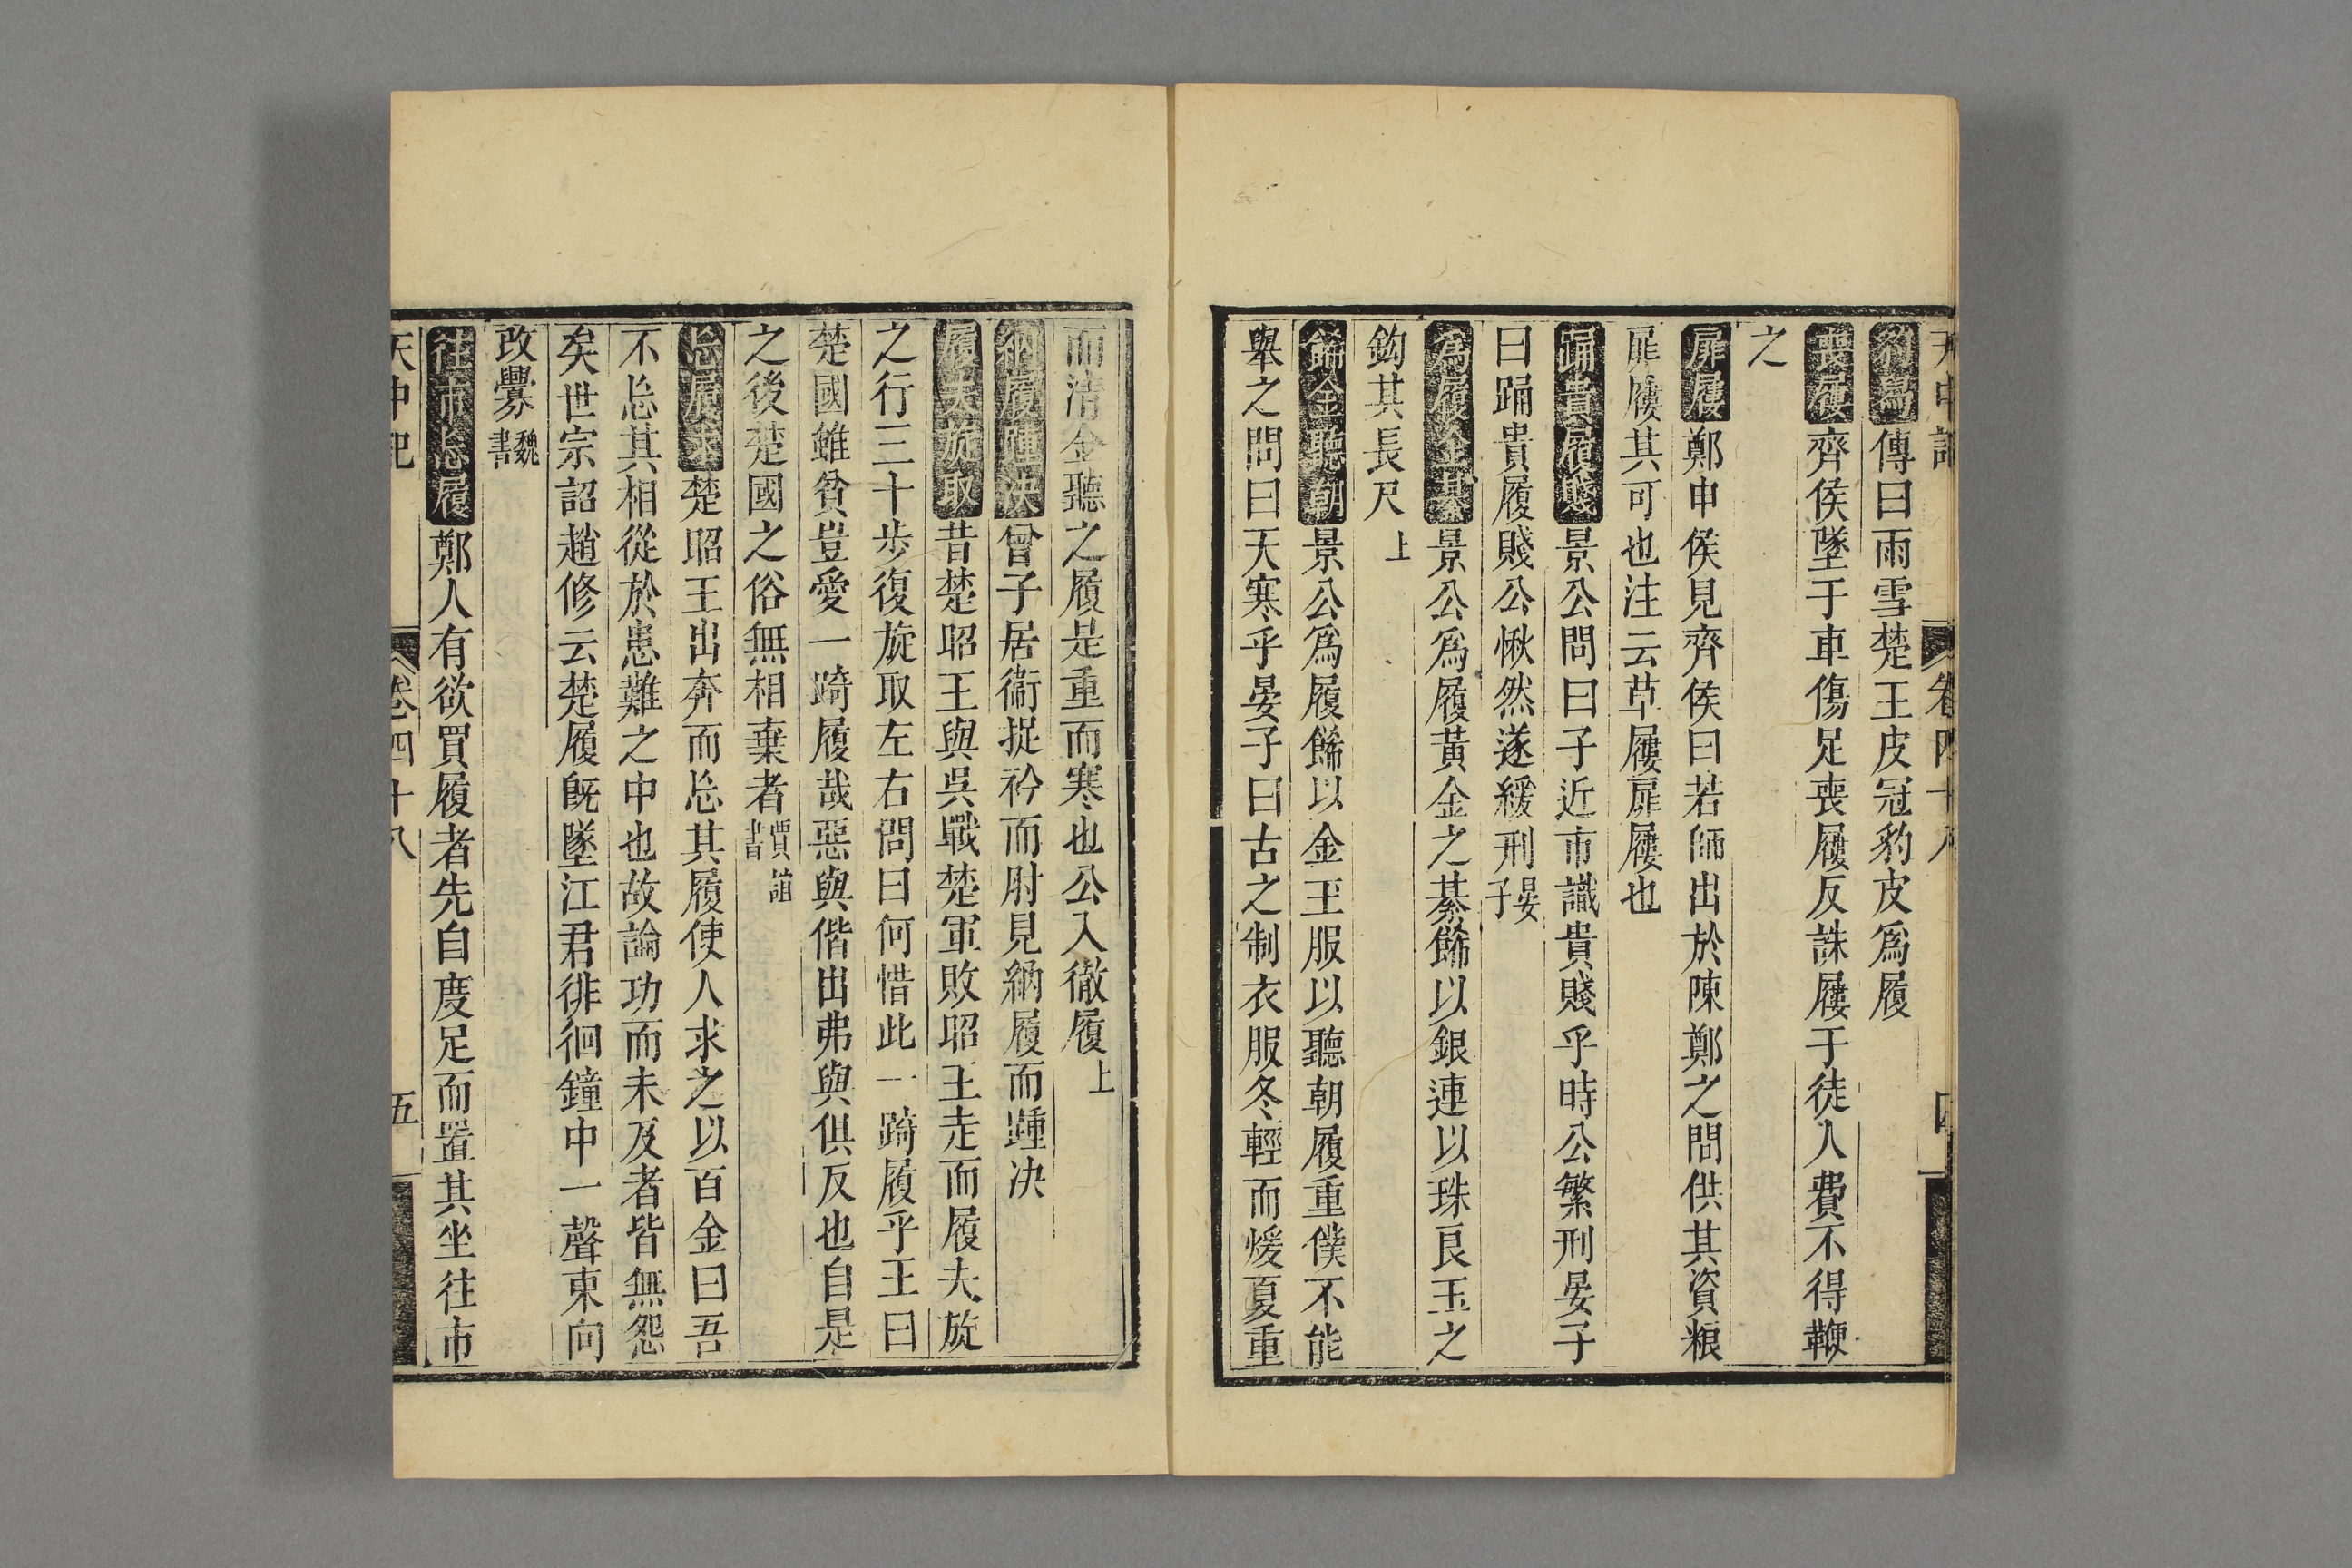 天中記 卷四十八 四
豹舄傳曰雨雪楚王皮冠豹皮爲履
喪屨齊侯墜于車傷足喪屨反誅屨于徒人費不得鞭
之
屝屨鄭申侯見齊侯曰若師出於陳鄭之間供其資粮
屝屨其可也注云草屨屝屨也
踊貴履賤景公問曰子近市識貴賤乎時公繁刑晏子
曰踊貴履賤公愀然遂緩刑晏子
為履金綦景公為履黃金之綦餙以銀連以珠良玉之
鈎其長尺上
餙金聽朝景公爲履餙以金玉服以聽朝履重僕不能
舉之問曰天寒乎晏子曰古之制衣服冬輕而煖夏重
而清金聽之履是重而寒也公入徹履上
納履踵决曾子居衞捉衿而肘見納履而踵决
履夬旋取昔楚昭王與吳戰楚軍敗昭王走而履夬旋
之行三十步復旋取左右問曰何惜此一踦履乎王曰
楚國雖貧豈愛一踦履哉惡與偕出弗與俱反也自是
之後楚國之俗無相棄者賈誼書
忘履求楚昭王出奔而忘其履使人求之以百金曰吾
不忘其相從於患難之中也故論功而未及者皆無怨
矣世宗詔趙修云楚履旣墜江君徘徊鐘中一聲東向
改釁魏書
往市忘履鄭人有欲買履者先自度足而置其坐往市
天中記 卷四十八 五